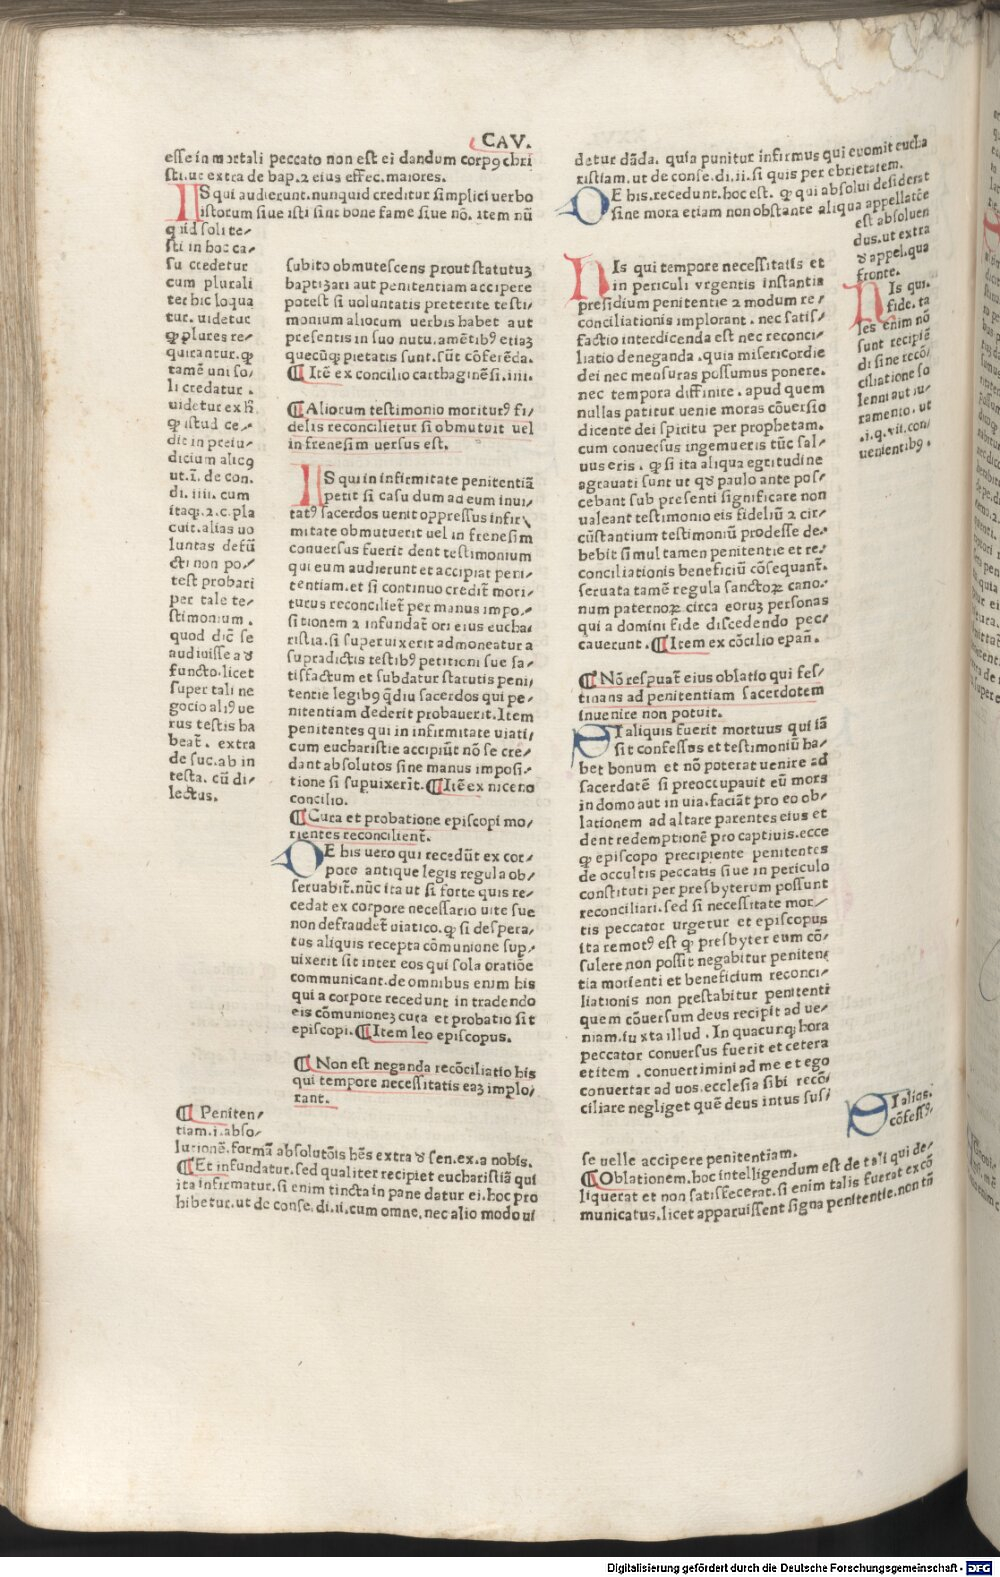 CAV.
esse in mortali peccato non est ei dandum corpꝯ chri
sti.ut extra de bap.⁊ eius effec.maiores.
IS qui audierunt.nunquid creditur simplici uerbo
istorum siue isti sint bone fame siue nō. item nū
quid soli te⸗
sti in hoc ca⸗
su credetur
cum plurali
ter hic loqua
tur. uidetur
qꝫ plures re⸗
quirantur.qꝫ
tamē uni so⸗
li credatur.
uidetur ex h̄
qꝫ istud ce⸗
dit in preiu⸗
dicium alicꝯ
ut.ī. de con.
di. iiii. cum
itaqꝫ.⁊.c. pla
cuit.alias uo
luntas defū
cti non po⸗
test probari
per tale te⸗
stimonium.
quod dic̄ se
audiuisse a d̄
functo.licet
super tali ne
gocio aliꝰ ue
rus testis ha
beat̄. extra
de suc.ab in
testa. cū di⸗
lectus.
subito obmutescens prout statutuꝫ
baptiꝫari aut penitentiam accipere
potest si uoluntatis preterite testi⸗
monium aliorum uerbis habet aut
presentis in suo nutu.amētibꝰ etiaꝫ
quecūqꝫ pietatis sunt.sūt cōferēda.
¶ Itē ex concilio carthaginēsi.iiii.
¶ Aliorum testimonio moriturꝰ fi⸗
delis reconcilietur si obmutuit uel
in frenesim uersus est.
IS qui in infirmitate penitentiā
petit si casu dum ad eum inui⸗
tatꝰ sacerdos uenit oppressus infir⸗
mitate obmutuerit uel in frenesim
conuersus fuerit dent testimonium
qui eum audierunt et accipiat peni⸗
tentiam.et si continuo credit̄ mori⸗
turus reconciliet̄ per manus impo⸗
sitionem ⁊ infundat̄ ori eius eucha⸗
ristia.si superuixerit admoneatur a
supradictis testibꝰ petitioni sue sa⸗
tisfactum et subdatur statutis peni⸗
tentie legibꝰ q̄diu sacerdos qui pe⸗
nitentiam dederit probauerit.Item
penitentes qui in infirmitate uiati⸗
cum eucharistie accipiūt nō se cre⸗
dant absolutos sine manus imposi⸗
tione si supuixerīt.¶Itē ex niceno
concilio.
¶ Cura et probatione episcopi mo⸗
rientes reconcilient̄.
DE his uero qui recedūt ex cor⸗
pore antique legis regula ob⸗
seruabit̄.nūc ita ut si forte quis re⸗
cedat ex corpore necessario uite sue
non defraudet̄ uiatico.qꝫ si despera⸗
tus aliquis recepta cōmunione sup⸗
uixerit sit inter eos qui sola oratiōe
communicant.de omnibus enim his
qui a corpore recedunt in tradendo
eis cōmunioneꝫ cura et probatio sit
episcopi.¶Item leo episcopus.
¶ Non est neganda recōciliatio his
qui tempore necessitatis eaꝫ implo⸗
rant.
¶ Peniten⸗
tiam.i.abso⸗
lutionē.formā absolutōis hēs extra d̄ sen.ex.a nobis.
¶Et infundatur.sed qualiter recipiet eucharistiā qui
ita infirmatur.si enim tincta in pane datur ei.hoc pro
hibetur.ut de conse.di.ii.cum omne.nec alio modo ui
detur dāda. quia punitur infirmus qui euomit eucha
ristiam.ut de conse.di.ii.si quis per ebrietatem.
DE his.recedunt.hoc est. qꝫ qui absolui desiderat
sine mora etiam non obstante aliqua appellatōe
est absoluen
dus.ut extra
d̄ appel.qua
fronte.
NIs qui.
fide.ta
les enim nō
sunt recipiē
di sine recō⸗
ciliatione so
lenni aut iu⸗
ramento.ut
.i.q.vii.con⸗
uenientibꝰ.
NIs qui tempore necessitatis et
in periculi vrgentis instantia
presidium penitentie ⁊ modum re⸗
conciliationis implorant. nec satis⸗
factio interdicenda est nec reconci⸗
liatio deneganda.quia misericordie
dei nec mensuras possumus ponere.
nec tempora diffinire.apud quem
nullas patitur uenie moras cōuersio
dicente dei spiritu per prophetam.
cum conuersus ingemueris tūc sal⸗
uus eris. qꝫ si ita aliqua egritudine
agrauati sunt ut qd̄ paulo ante pos⸗
cebant sub presenti significare non
ualeant testimonio eis fideliū ⁊ cir⸗
cūstantium testimoniū prodesse de⸗
bebit simul tamen penitentie et re⸗
conciliationis beneficiū cōsequant̄.
seruata tamē regula sanctoꝝ cano⸗
num paternoꝝ circa eoruꝫ personas
qui a domini fide discedendo pec⸗
cauerunt.¶Item ex cōcilio epañ.
¶ Nō respuat̄ eius oblatio qui fes⸗
tinans ad penitentiam sacerdotem
inuenire non potuit.
SI aliquis fuerit mortuus qui iā
sit confessus et testimoniū ha⸗
bet bonum et nō poterat uenire ad
sacerdotē si preoccupauit eū mors
in domo aut in uia.faciāt pro eo ob⸗
lationem ad altare parentes eius et
dent redemptionē pro captiuis.ecce
qꝫ episcopo precipiente penitentes
de occultis peccatis siue in periculo
constituti per presbyterum possunt
reconciliari.sed si necessitate mor⸗
tis peccator urgetur et episcopus
ita remotꝰ est qꝫ presbyter eum cō⸗
sulere non possit negabitur peniten⸗
tia morienti et beneficium reconci⸗
liationis non prestabitur penitenti
quem cōuersum deus recipit ad ue⸗
niam.iuxta illud. In quacunqꝫ hora
peccator conuersus fuerit et cetera
et item.conuertimini ad me et ego
conuertar ad uos.ecclesia sibi recō⸗
ciliare negliget quē deus intus susi
se uelle accipere penitentiam.
SI aliqs.
cōfessꝰ.
¶Oblationem.hoc intelligendum est de tali qui de⸗
liquerat et non satisfecerat.si enim talis fuerat excō
municatus.licet apparuissent signa penitentie.non tn̄
Digitalisierung gefördert durch die Deutsche Forschungsgemeinschaft - DFG